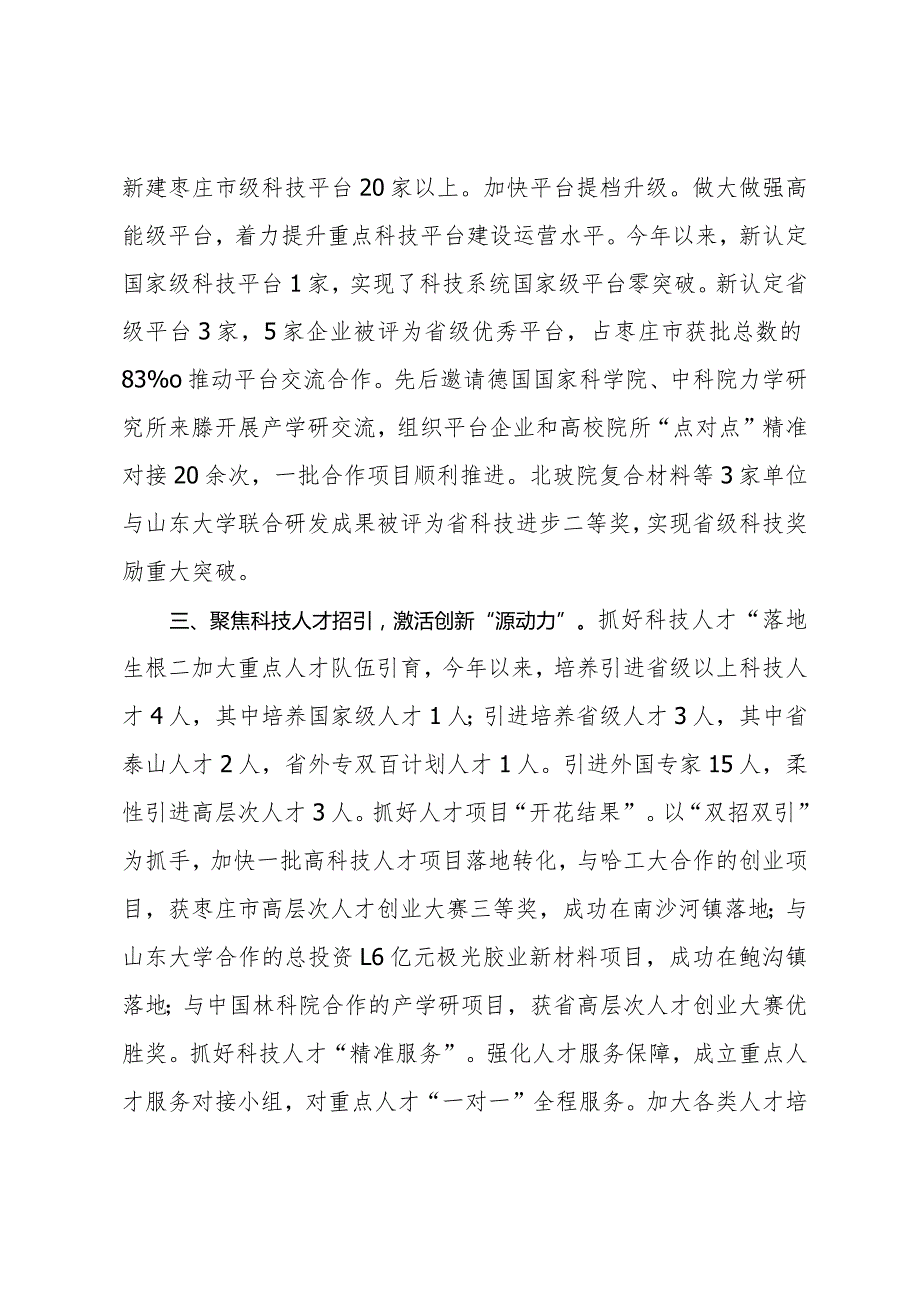 新建枣庄市级科技平台20家以上。加快平台提档升级。做大做强高
能级平台，着力提升重点科技平台建设运营水平。今年以来，新认定
国家级科技平台1家，实现了科技系统国家级平台零突破。新认定省
级平台3家，5家企业被评为省级优秀平台，占枣庄市获批总数的
83%o推动平台交流合作。先后邀请德国国家科学院、中科院力学研
究所来滕开展产学研交流，组织平台企业和高校院所“点对点”精准
对接20余次，一批合作项目顺利推进。北玻院复合材料等3家单位
与山东大学联合研发成果被评为省科技进步二等奖，实现省级科技奖
励重大突破。
三、聚焦科技人才招引，激活创新“源动力”。抓好科技人才“落地
生根二加大重点人才队伍引育，今年以来，培养引进省级以上科技人
才4人，其中培养国家级人才1人；引进培养省级人才3人，其中省
泰山人才2人，省外专双百计划人才1人。引进外国专家15人，柔
性引进高层次人才3人。抓好人才项目“开花结果”。以“双招双引”
为抓手，加快一批高科技人才项目落地转化，与哈工大合作的创业项
目，获枣庄市高层次人才创业大赛三等奖，成功在南沙河镇落地；与
山东大学合作的总投资L6亿元极光胶业新材料项目，成功在鲍沟镇
落地；与中国林科院合作的产学研项目，获省高层次人才创业大赛优
胜奖。抓好科技人才“精准服务”。强化人才服务保障，成立重点人
才服务对接小组，对重点人才“一对一”全程服务。加大各类人才培